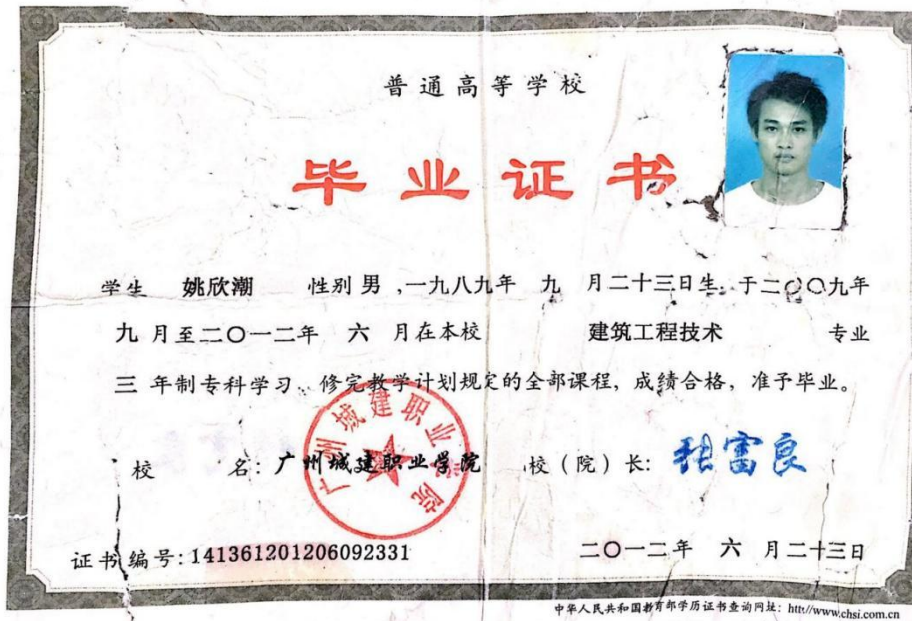 普通高等学校
毕业证书
学生 姚欣潮 性别 男 ,一九八九年 九 月二十三日生, 于二〇〇九年
九 月至二〇一二年 六 月在本校 建筑工程技术 专业
三 年制专科学习, 修完教学计划规定的全部课程, 成绩合格, 准予毕业。
广州城建职业学院
校 名: 广州城建职业学院 校(院)长: 张富良
证书编号: 141361201206092331 二〇一二年 六 月二十三日
中华人民共和国教育部学历证书查询网址: http://www.chsi.com.cn